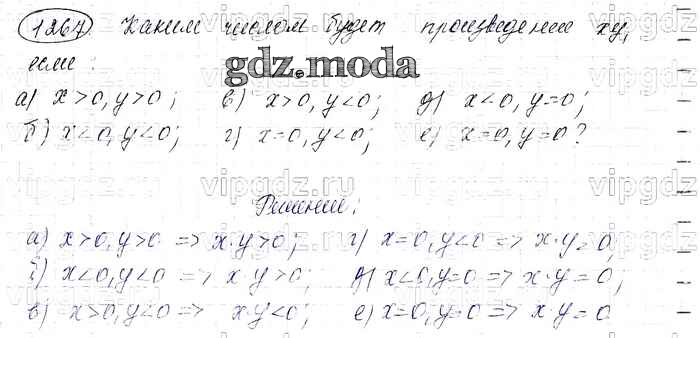 1267 Каким числом будет произведение xy,
если:
gdz.moda
а) x>0, y>0; в) x>0, y<0; д) x<0, y=0;
б) x<0, y<0; г) x=0, y<0; е) x=0, y=0?
vipgdz.ru vipgdz.ru vipgdz.ru vipgdz
Решение:
а) x>0, y>0 => x·y>0; г) x=0, y<0 => x·y=0
б) x<0, y<0 => x·y>0; д) x<0, y=0 => x·y=0;
в) x>0, y<0 => x·y<0; е) x=0, y=0 => x·y=0